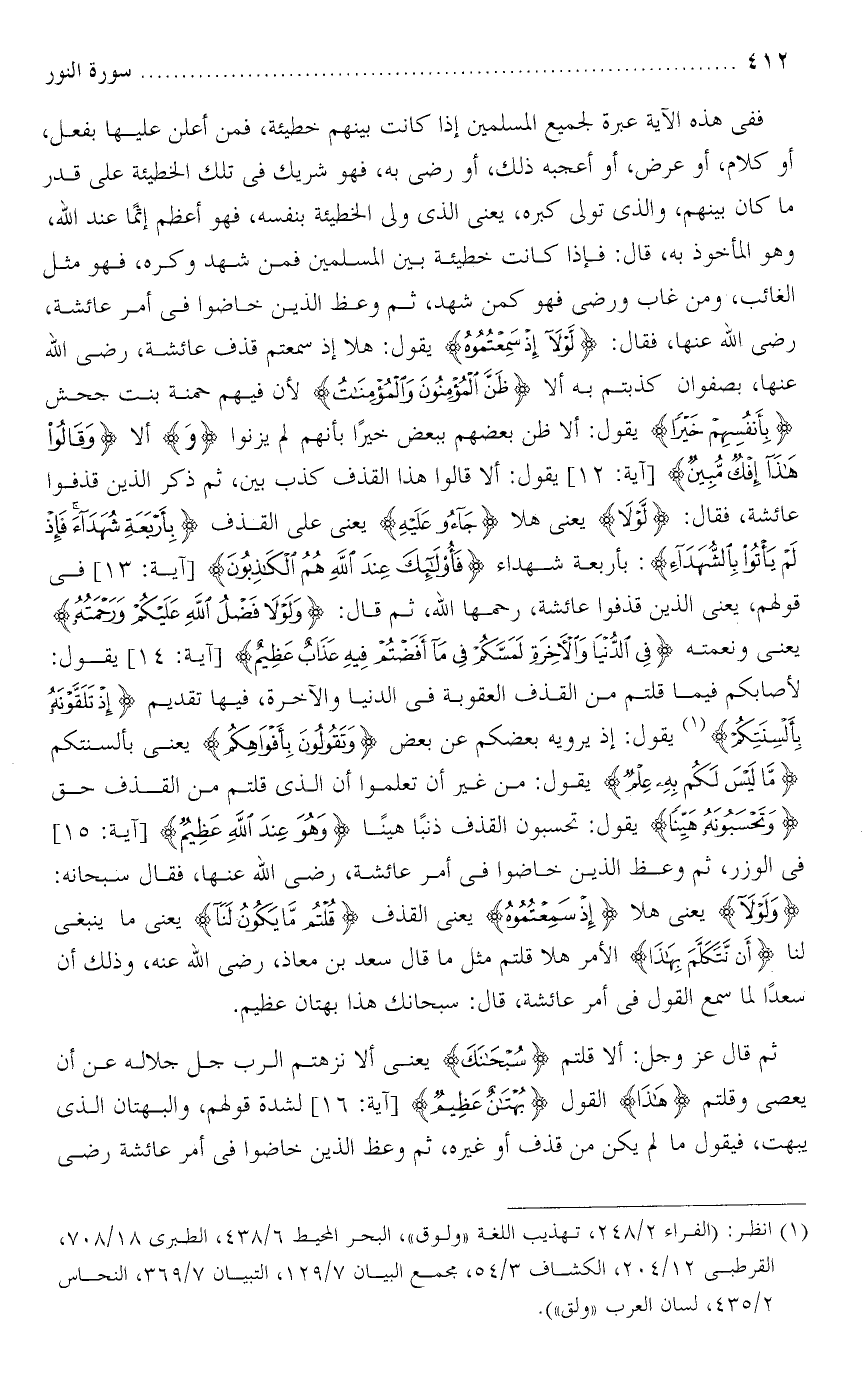 ٤١٢ ........................................................................ سورة النور
ففى هذه الآية عبرة لجميع المسلمين إذا كانت بينهم خطيئة، فمن أعلن عليها بفعل،
أو كلام، أو عرض، أو أعجبه ذلك، أو رضى به، فهو شريك فى تلك الخطيئة على قدر
ما كان بينهم، والذى تولى كبره، يعنى الذى ولى الخطيئة بنفسه، فهو أعظم إثمًا عند الله،
وهو المأخوذ به، قال: فإذا كانت خطيئة بين المسلمين فمن شهد وكره، فهو مثل
الغائب، ومن غاب ورضى فهو كمن شهد، ثم وعظ الذين خاضوا فى أمر عائشة،
رضى الله عنها، فقال: ﴿لَّوْلَآ إِذْ سَمِعْتُمُوهُ﴾ يقول: هلا إذ سمعتم قذف عائشة، رضى الله
عنها، بصفوان كذبتم به ألا ﴿ظَنَّ ٱلْمُؤْمِنُونَ وَٱلْمُؤْمِنَٰتُ﴾ لأن فيهم حمنة بنت جحش
﴿بِأَنفُسِهِمْ خَيْرًا﴾ يقول: ألا ظن بعضهم ببعض خيرًا بأنهم لم يزنوا ﴿وَ﴾ ألا ﴿وَقَالُوا۟
هَٰذَآ إِفْكٌ مُّبِينٌ﴾ [آية: ١٢] يقول: ألا قالوا هذا القذف كذب بين، ثم ذكر الذين قذفوا
عائشة، فقال: ﴿لَّوْلَا﴾ يعنى هلا ﴿جَآءُو عَلَيْهِ﴾ يعنى على القذف ﴿بِأَرْبَعَةِ شُهَدَآءَ ۚ فَإِذْ
لَمْ يَأْتُوا۟ بِٱلشُّهَدَآءِ﴾: بأربعة شهداء ﴿فَأُو۟لَٰٓئِكَ عِندَ ٱللَّهِ هُمُ ٱلْكَٰذِبُونَ﴾ [آية: ١٣] فى
قولهم، يعنى الذين قذفوا عائشة، رحمها الله، ثم قال: ﴿وَلَوْلَا فَضْلُ ٱللَّهِ عَلَيْكُمْ وَرَحْمَتُهُۥ﴾
يعنى ونعمته ﴿فِى ٱلدُّنْيَا وَٱلْءَاخِرَةِ لَمَسَّكُمْ فِى مَآ أَفَضْتُمْ فِيهِ عَذَابٌ عَظِيمٌ﴾ [آية: ١٤] يقول:
لأصابكم فيما قلتم من القذف العقوبة فى الدنيا والآخرة، فيها تقديم ﴿إِذْ تَلَقَّوْنَهُۥ
بِأَلْسِنَتِكُمْ﴾(١) يقول: إذ يرويه بعضكم عن بعض ﴿وَتَقُولُونَ بِأَفْوَاهِكُم﴾ يعنى بألسنتكم
﴿مَّا لَيْسَ لَكُم بِهِۦ عِلْمٌ﴾ يقول: من غير أن تعلموا أن الذى قلتم من القذف حق
﴿وَتَحْسَبُونَهُۥ هَيِّنًا﴾ يقول: تحسبون القذف ذنبًا هينًا ﴿وَهُوَ عِندَ ٱللَّهِ عَظِيمٌ﴾ [آية: ١٥]
فى الوزر، ثم وعظ الذين خاضوا فى أمر عائشة، رضى الله عنها، فقال سبحانه:
﴿وَلَوْلَآ﴾ يعنى هلا ﴿إِذْ سَمِعْتُمُوهُ﴾ يعنى القذف ﴿قُلْتُم مَّا يَكُونُ لَنَآ﴾ يعنى ما ينبغى
لنا ﴿أَن نَّتَكَلَّمَ بِهَٰذَا﴾ الأمر هلا قلتم مثل ما قال سعد بن معاذ، رضى الله عنه، وذلك أن
سعدًا لما سمع القول فى أمر عائشة، قال: سبحانك هذا بهتان عظيم.
ثم قال عز وجل: ألا قلتم ﴿سُبْحَٰنَكَ﴾ يعنى ألا نزهتم الرب جل جلاله عن أن
يعصى وقلتم ﴿هَٰذَا﴾ القول ﴿بُهْتَٰنٌ عَظِيمٌ﴾ [آية: ١٦] لشدة قولهم، والبهتان الذى
يبهت، فيقول ما لم يكن من قذف أو غيره، ثم وعظ الذين خاضوا فى أمر عائشة رضى
(١) انظر: (الفراء ٢٤٨/٢، تهذيب اللغة «ولوق»، البحر المحيط ٤٣٨/٦، الطبرى ٧٠٨/١٨،
القرطبى ٢٠٤/١٢، الكشاف ٥٤/٣، مجمع البيان ١٢٩/٧، التبيان ٣٦٩/٧، النحاس
٤٣٥/٢، لسان العرب «ولق»).